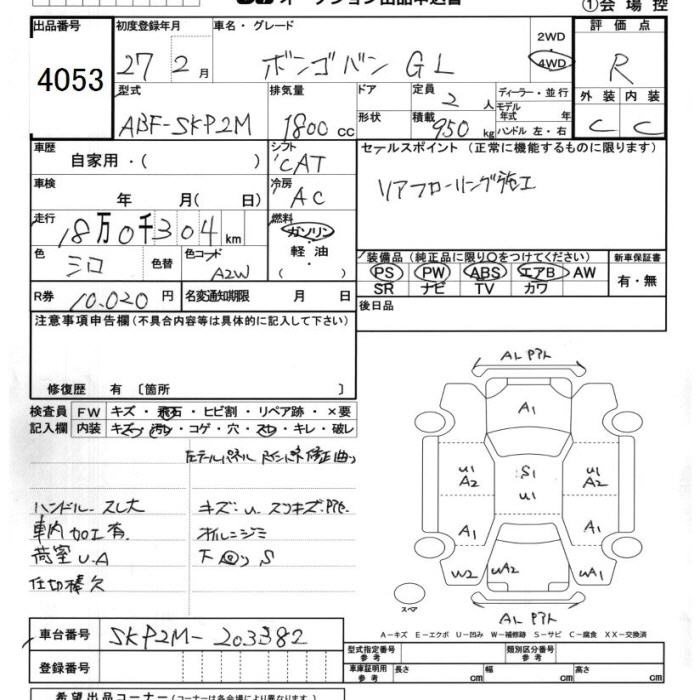 オークション出品申込書
①会場控
出品番号 初度登録年月 車名・グレード 評価点
4053 27 2月 ボンゴバン GL 2WD 4WD R
型式 排気量 ドア 定員 2人 ディーラー・並行 外装 内装
ABF-SKP2M 1800cc 形状 積載 950kg モデル年式 年 C C
ハンドル 左・右
車歴 シフト セールスポイント (正常に機能するものに限ります)
自家用・( ) CAT リアフローリング施工
車検 冷房
年 月( 日) AC
走行 燃料
18万0千304km ガソリン
色 色替 色コード 軽油 装備品 (純正品に限り○をつけてください) 新車保証書
シロ A2W ・( ) PS PW ABS エアB AW 有・無
SR ナビ TV カワ
R券 10,020円 名変通知期限 月 日 後日品
注意事項申告欄(不具合内容等は具体的に記入して下さい)
修復歴 有 〔箇所 〕
検査員 FW キズ・飛石・ヒビ割・リペア跡・×要
記入欄 内装 キズ・汚レ・コゲ・穴・スレ・キレ・破レ
左テールパネル 修正曲り
ハンドルスレ大 キズ・u スリキズ
車内加工有 ボルニジミ
荷室U.A 下回りS
仕切棒欠
AL
A1
U1 A2 S1 U1 U1 A2
A1 A1
W2 UA2 UA1
スペア
AL
A−キズ E−エクボ U−凹み W−補修跡 S−サビ C−腐食 XX−交換済
車台番号 SKP2M-203382 型式指定番号 参考 類別区分番号 参考
登録番号 車庫証明用 参考 長さ cm 幅 cm 高さ cm
希望出品コーナー (コーナーは各会場により異なります)